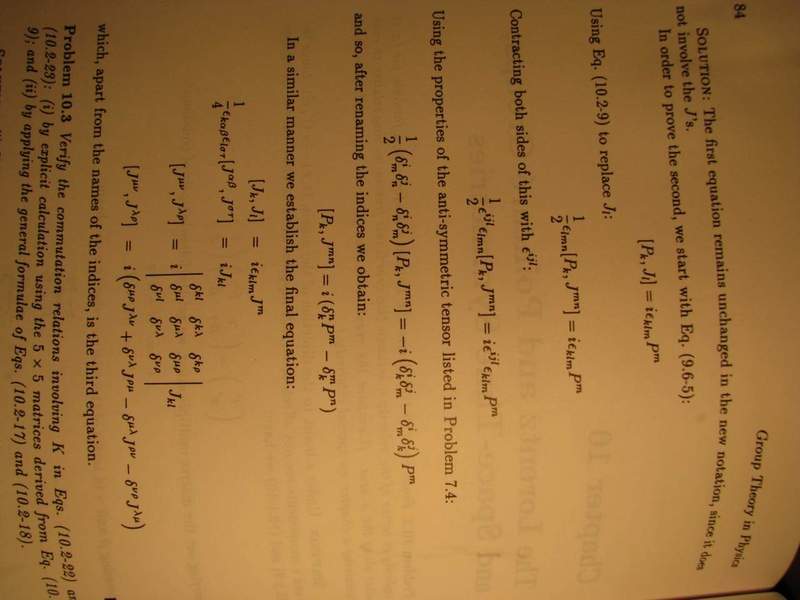 84
Group Theory in Physics
SOLUTION: The first equation remains unchanged in the new notation, since it does
not involve the J's.
In order to prove the second, we start with Eq. (9.6-5):
[P_k, J_l] = iϵ_{klm}P^m
Using Eq. (10.2-9) to replace J_l:
\frac{1}{2}ϵ_{lmn}[P_k, J^{mn}] = iϵ_{klm}P^m
Contracting both sides of this with ϵ^{ijl}:
\frac{1}{2}ϵ^{ijl}ϵ_{lmn}[P_k, J^{mn}] = iϵ^{ijl}ϵ_{klm}P^m
Using the properties of the anti-symmetric tensor listed in Problem 7.4:
\frac{1}{2}(δ^i_mδ^j_n − δ^i_nδ^j_m)[P_k, J^{mn}] = −i(δ^i_kδ^j_m − δ^i_mδ^j_k)P^m
and so, after renaming the indices we obtain:
[P_k, J^{mn}] = i(δ^n_kP^m − δ^m_kP^n)
In a similar manner we establish the final equation:
[J_k, J_l] = iϵ_{klm}J^m
\frac{1}{4}ϵ_{kαβ}ϵ_{lστ}[J^{αβ}, J^{στ}] = iJ_{kl}
[J^{μν}, J^{λρ}] = i | δ^{kl} δ^{kλ} δ^{kρ} ; δ^{μl} δ^{μλ} δ^{μρ} ; δ^{νl} δ^{νλ} δ^{νρ} | J_{kl}
[J^{μν}, J^{λρ}] = i(δ^{μρ}J^{λν} + δ^{νλ}J^{ρμ} − δ^{μλ}J^{ρν} − δ^{νρ}J^{λμ})
which, apart from the names of the indices, is the third equation.
Problem 10.3 Verify the commutation relations involving K in Eqs. (10.2-22)
(10.2-23): (i) by explicit calculation using the 5 × 5 matrices derived from Eq. (10.
9); and (ii) by applying the general formulae of Eqs. (10.2-17) and (10.2-18).